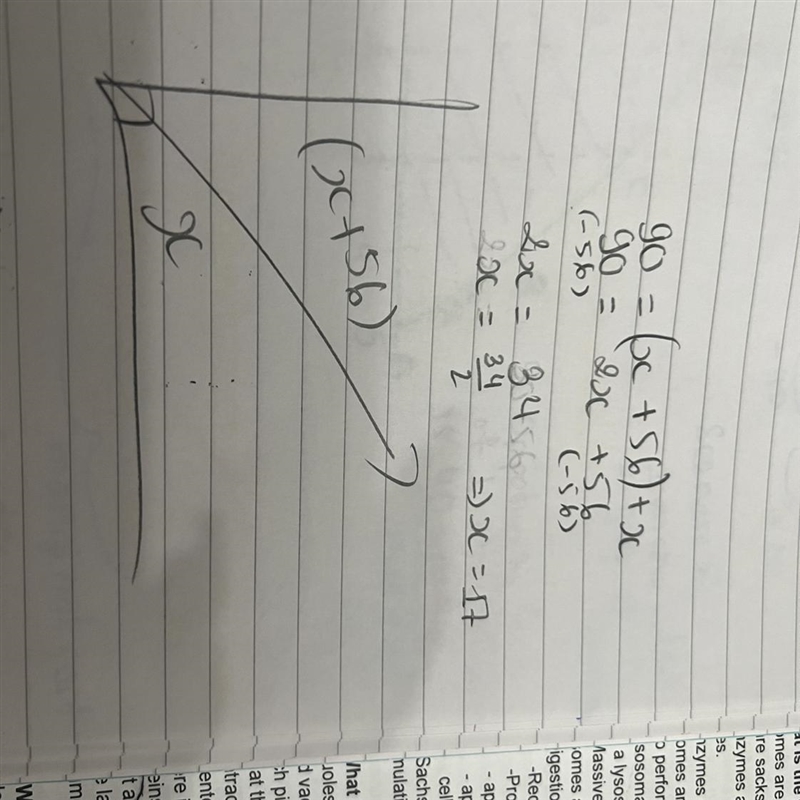 90 = (x + 56) + x
90 = 2x + 56
(-56) (-56)
2x = 34
x = 34/2 => x = 17
(x + 56)
x
at is the
omes are
re sacks
nzymes a
es.
nzymes
omes ar
o perfor
sosoma
a lysos
Massive
omes
igestio
-Rec
-Pro
- ap
- ap
cel
Sachs
mulati
What
uoles
d vac
ch pi
at th
trac
ent
re
ein
t a
e la
m
W